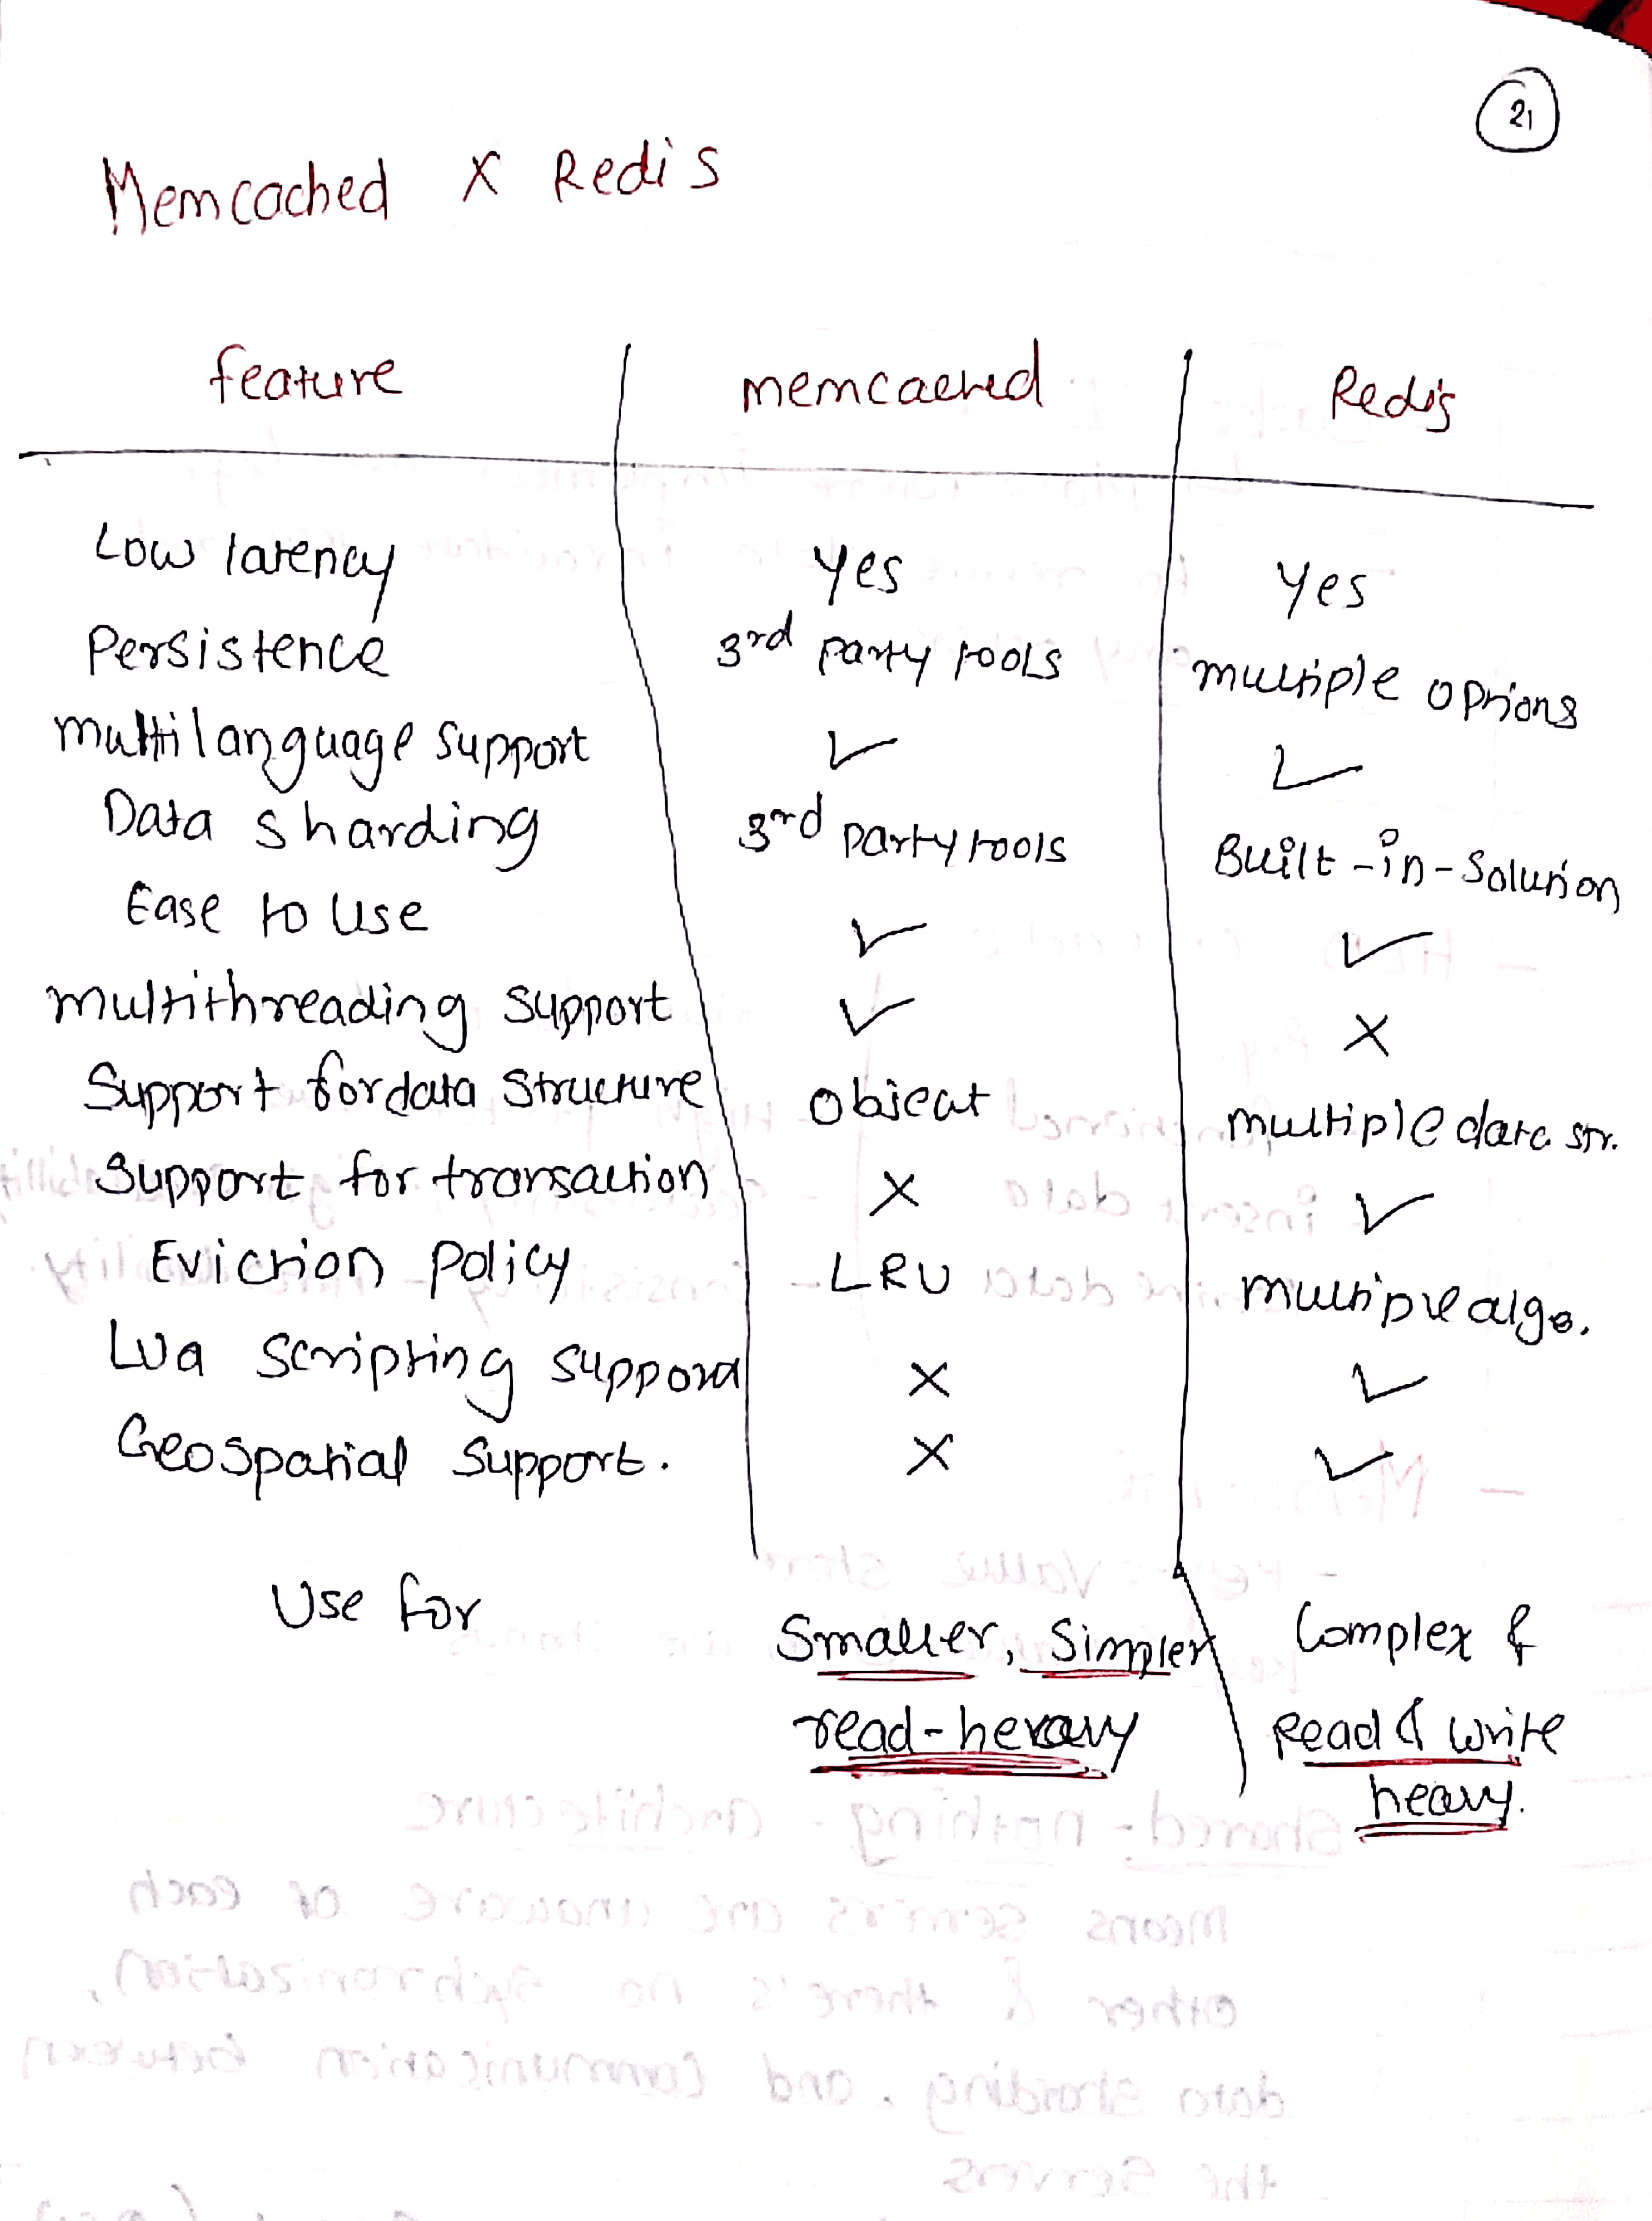 21
Memcached X Redis
feature memcached Redis
Low latency Yes Yes
Persistence 3rd party tools multiple options
multilanguage support ✓ ✓
Data sharding 3rd party tools Built-in-Solution
Ease to Use ✓ ✓
multithreading support ✓ X
Support for data structure Object multiple data str.
Support for transaction X ✓
Eviction Policy LRU multiple algo.
Lua scripting support X ✓
Geospatial Support. X ✓
Use for Smaller, Simpler Complex &
read-heavy Read & write
heavy.